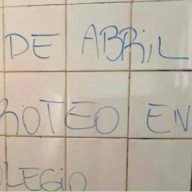 DE ABRIL
ROTEO EN
LEGIO